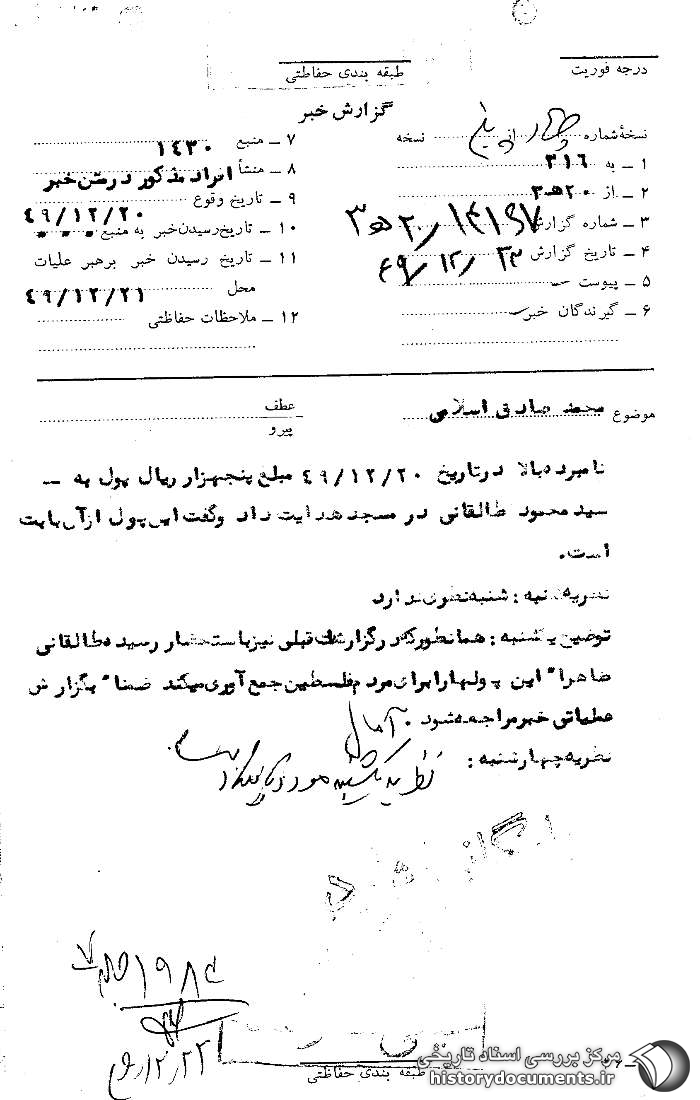 درجه فوریت
طبقه بندی حفاظتی
گزارش خبر
نسخهٔ شماره چهار از پنج نسخه
۱ ـ به ۳۱۶
۲ ـ از ۲۰ هـ ۳
۳ ـ شماره گزارش
۴ ـ تاریخ گزارش ۴۹/۱۲/۲۳
۵ ـ پیوست
۶ ـ گیرندگان خبر
۷ ـ منبع ۱۴۳۰
۸ ـ منشأ افراد مذکور در متن خبر
۹ ـ تاریخ وقوع ۴۹/۱۲/۲۰
۱۰ ـ تاریخ رسیدن خبر به منبع
۱۱ ـ تاریخ رسیدن خبر برهبر علیات
محل ۴۹/۱۲/۲۱
۱۲ ـ ملاحظات حفاظتی
موضوع محمد صادق اسلامی
عطف
پیرو
نامبرده بالا در تاریخ ۴۹/۱۲/۲۰ مبلغ پنجهزار ریال پول به ـ
سید محمود طالقانی در مسجد هدایت داد و گفت این پول از آن بابت
است.
نظریه شنبه : شنبه نظری ندارد
توضیح یکشنبه : همانطور که در گزارشات قبلی نیز باستحضار رسیده طالقانی
ظاهرا" این پولها را برای مردم فلسطین جمع آوری میکند ضمنا" بگزارش
عملیاتی خبر مراجعه شود . آمال
نظریه چهارشنبه : نظریه یکشنبه مورد تایید است
بایگانی شود
۱۲/۲۳
طبقه بندی حفاظتی
مرکز بررسی اسناد تاریخی
historydocuments.ir